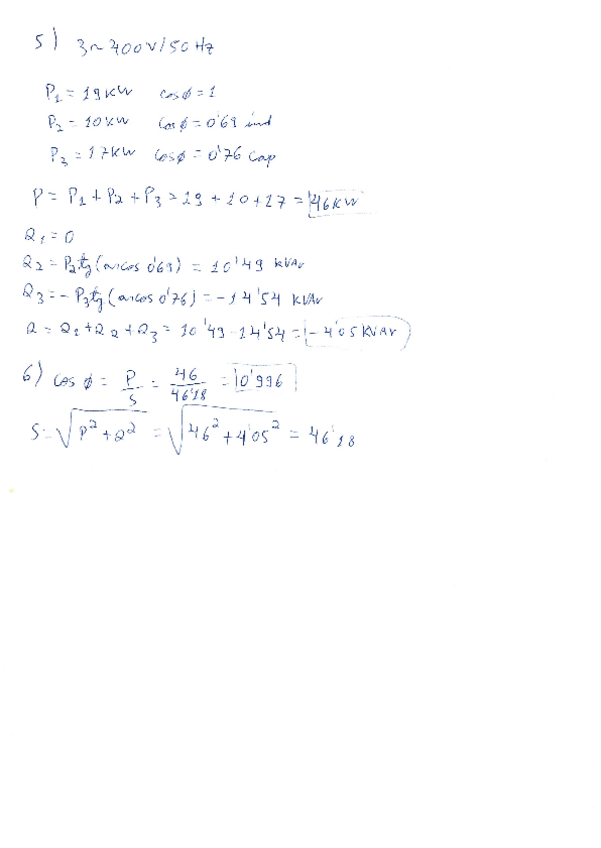 5) 3~ 400V/50Hz
P₁ = 19KW cosϕ = 1
P₂ = 10KW cosϕ = 0'69 ind
P₃ = 17KW cosϕ = 0'76 cap
P = P₁ + P₂ + P₃ = 19 + 10 + 17 = 46KW
Q₁ = 0
Q₂ = P₂tg(arcos 0'69) = 10'49 KVAr
Q₃ = -P₃tg(arcos 0'76) = -14'54 KVAr
Q = Q₁ + Q₂ + Q₃ = 10'49 - 14'54 = -4'05 KVAr
6) cos ϕ = P/S = 46/46'18 = 0'996
S = √(P² + Q²) = √(46² + 4'05²) = 46'18